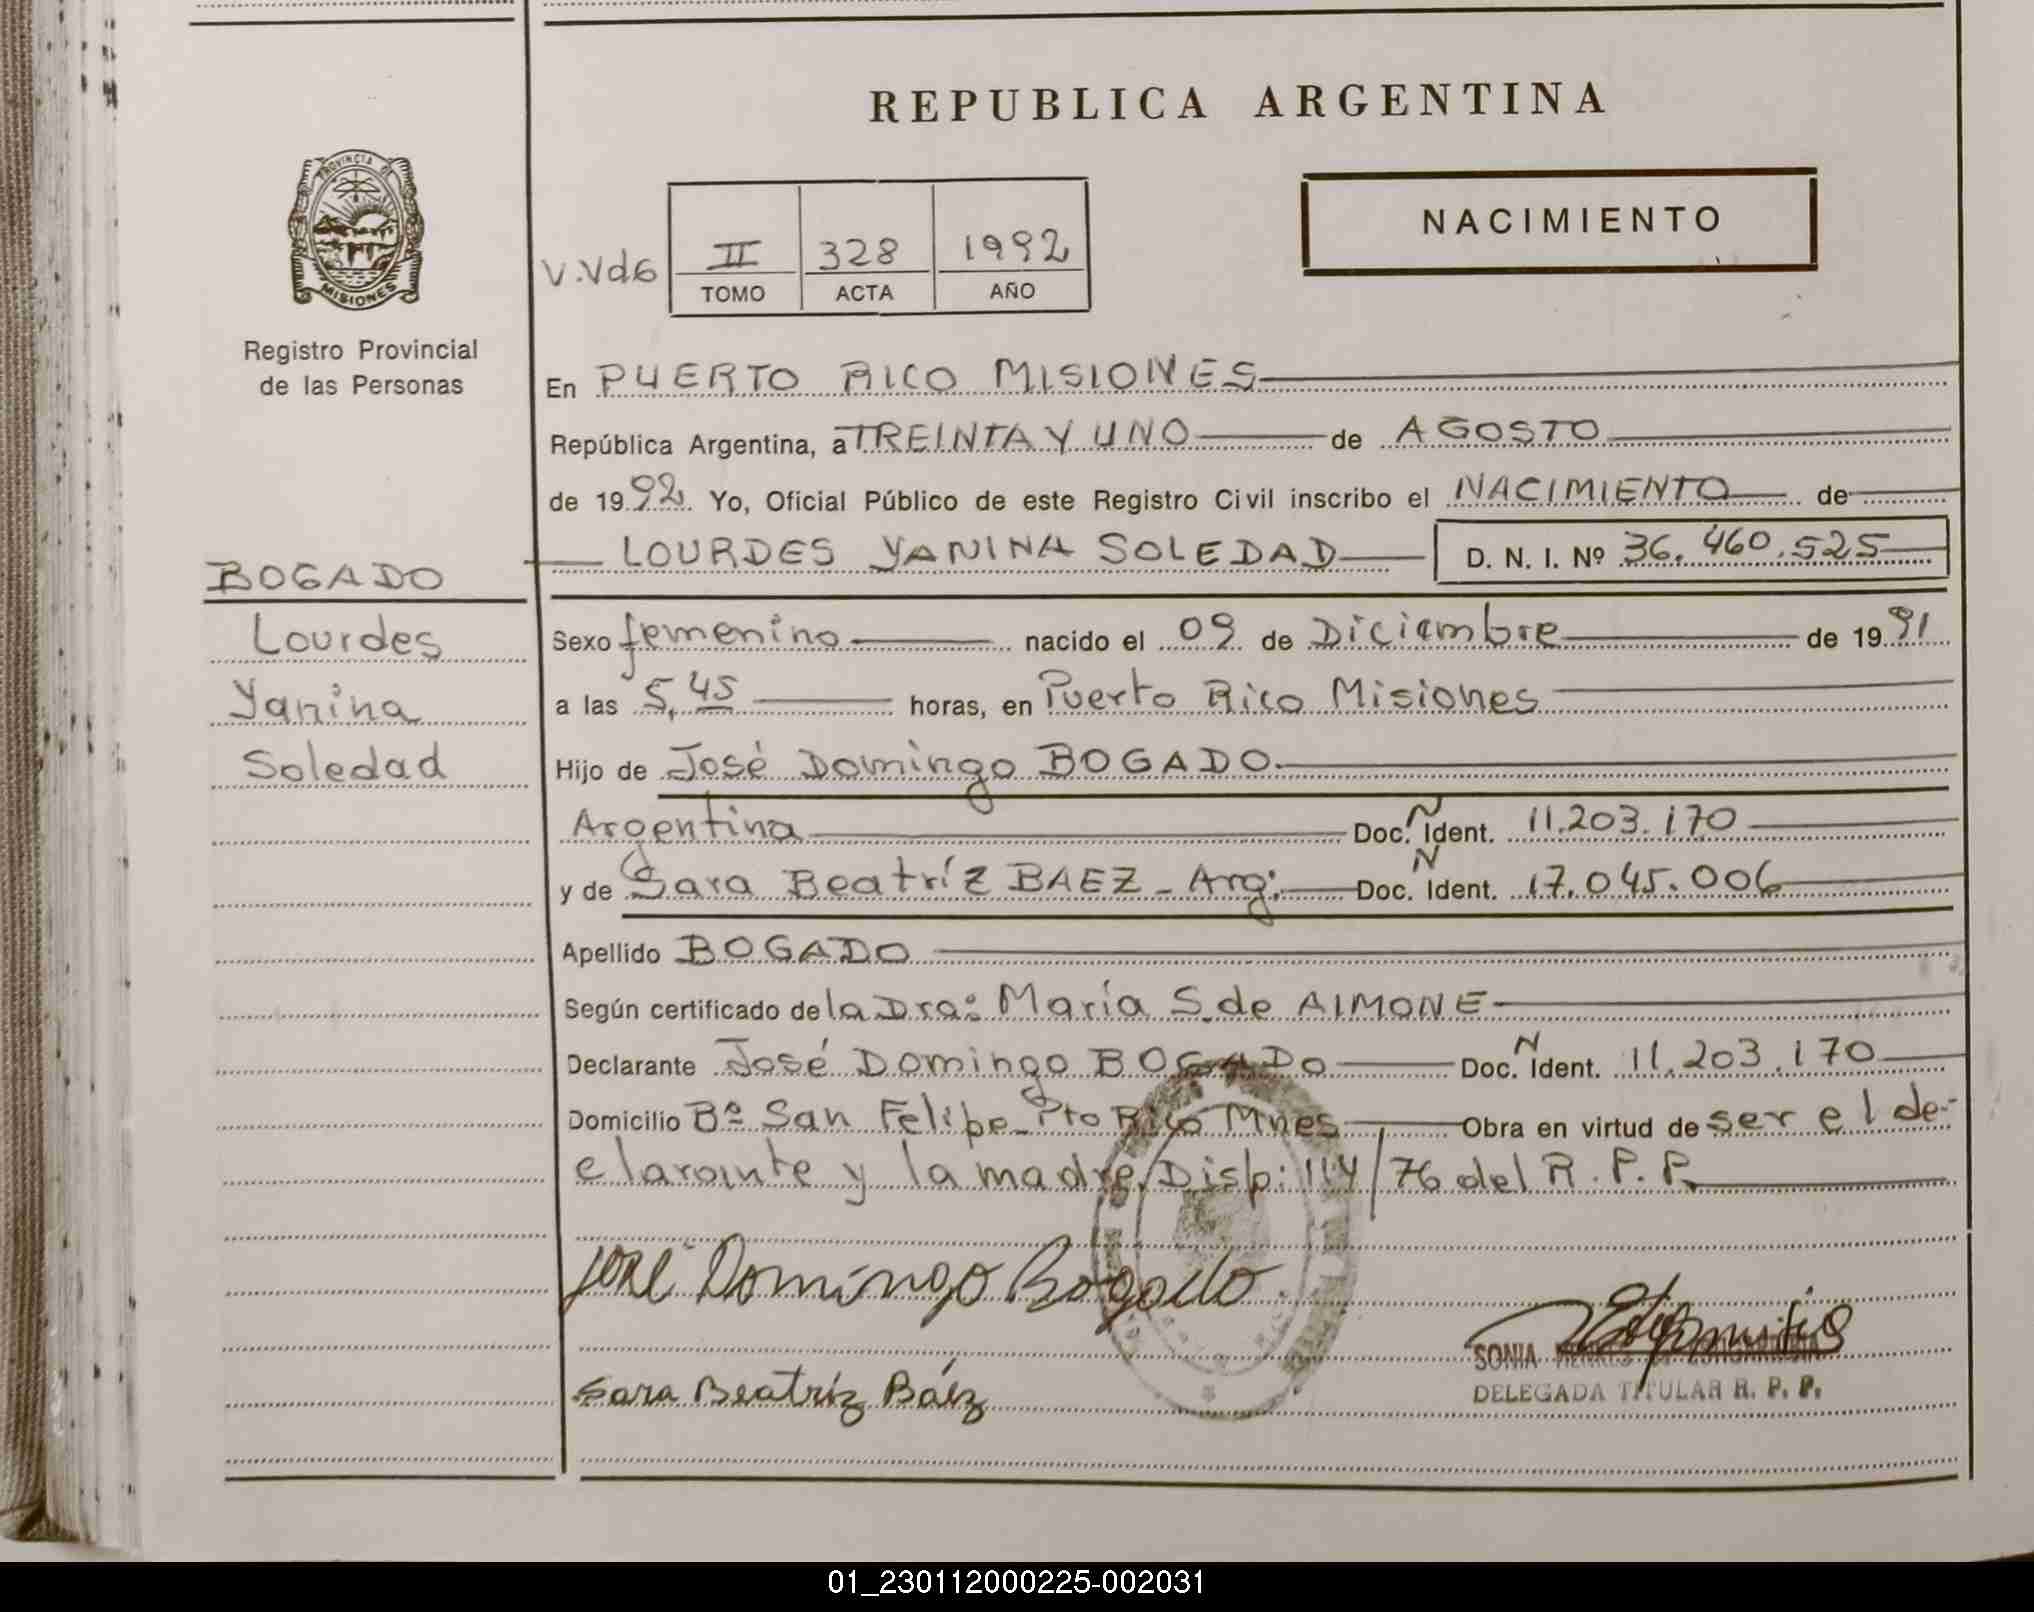 REPUBLICA ARGENTINA
PROVINCIA DE
MISIONES
Registro Provincial
de las Personas
NACIMIENTO
V.Vd6 II 328 1992
TOMO ACTA AÑO
En PUERTO RICO MISIONES
República Argentina, a TREINTA Y UNO de AGOSTO
de 1992 Yo, Oficial Público de este Registro Civil inscribo el NACIMIENTO de
LOURDES YANINA SOLEDAD D. N. I. Nº 36.460.525
BOGADO
Lourdes
Yanina
Soledad
Sexo femenino nacido el 09 de Diciembre de 1991
a las 5,45 horas, en Puerto Rico Misiones
Hijo de José Domingo BOGADO
Argentina Doc. N Ident. 11.203.170
y de Sara Beatríz BAEZ - Arg: Doc. N Ident. 17.045.006
Apellido BOGADO
Según certificado de la Dra: María S. de AIMONE
Declarante José Domingo BOGADO Doc. N Ident. 11.203.170
Domicilio Bº San Felipe - Pto Rico Mnes Obra en virtud de ser el de-
clarante y la madre. Disp: 114/76 del R.P.P.
José Domingo Bogado
Sara Beatríz Báez
SONIA
DELEGADA TITULAR R. P. P.
01_230112000225-002031